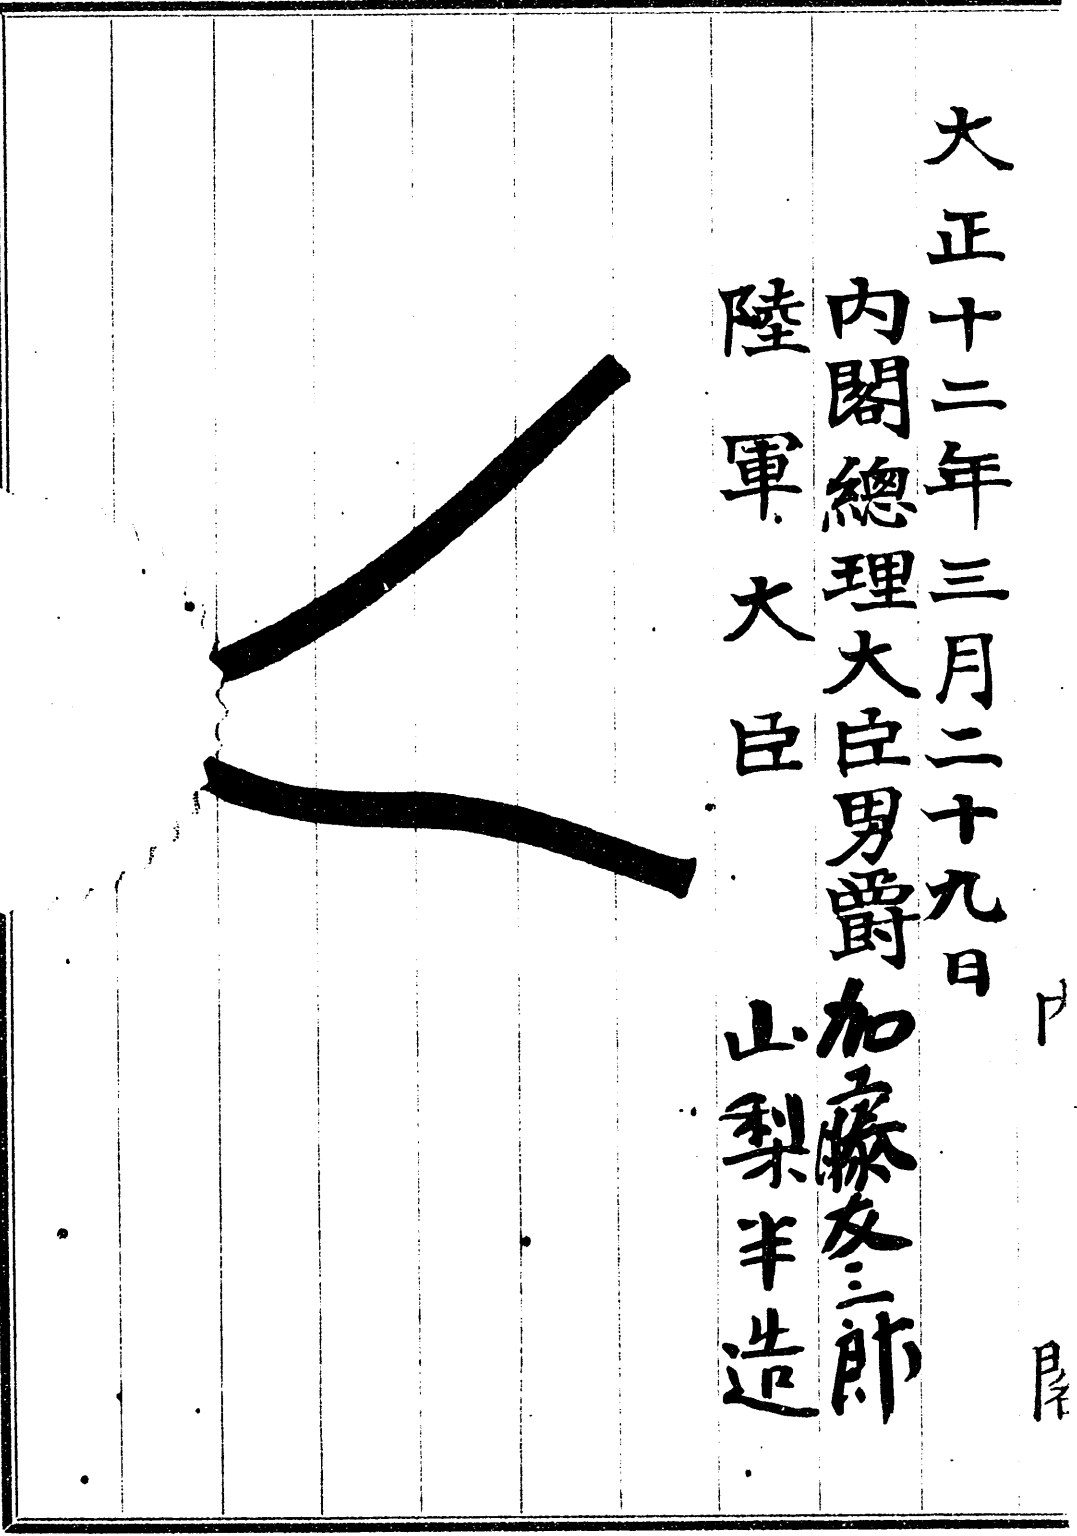 内閣
大正十二年三月二十九日
内閣總理大臣男爵加藤友三郎
陸軍大臣 山梨半造